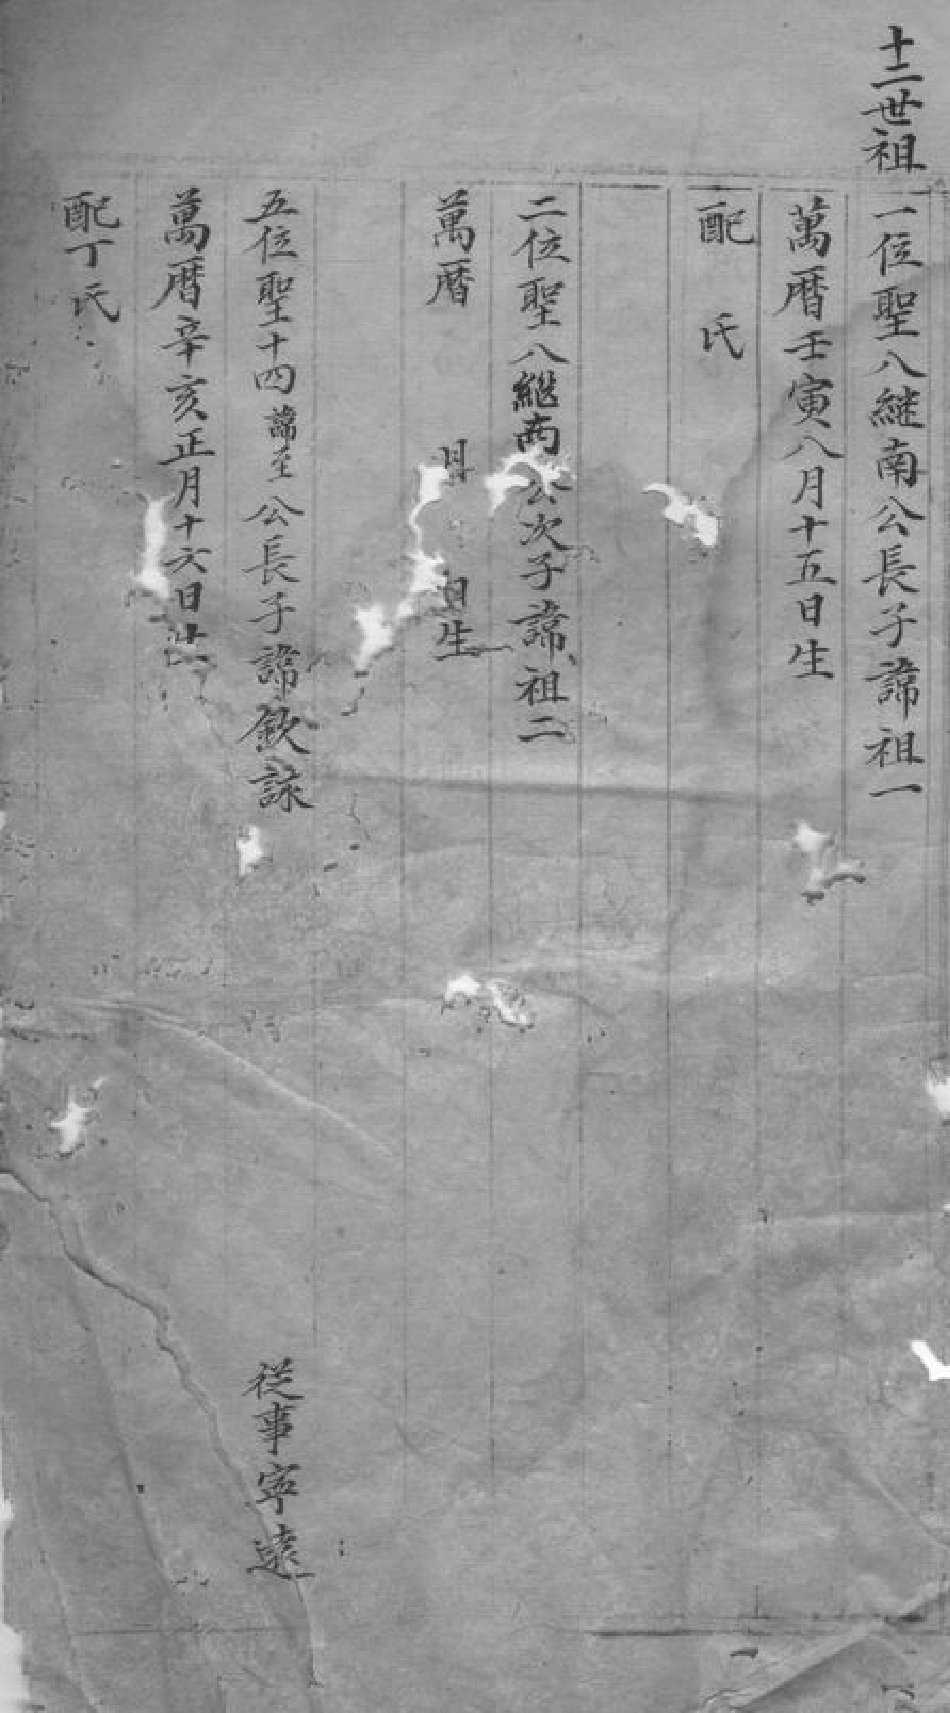 十二世祖
一位聖八継南公長子諱祖一
萬曆壬寅八月十五日生
配 氏
二位聖八継南公次子諱祖二
萬曆 月 日生
五位聖十四諱至公長子諱欽詠
從事寧遠
萬曆辛亥正月十六日
配丁氏